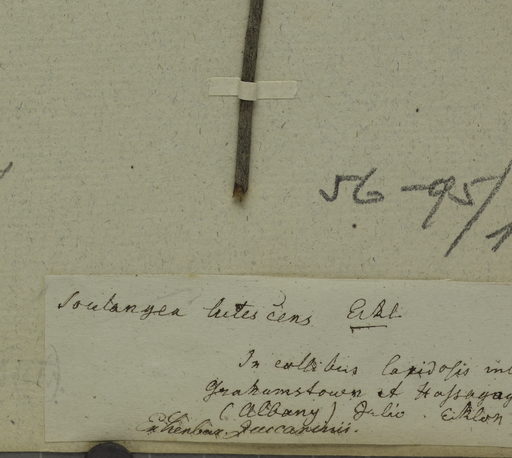 56-95/1
Soulangea lutescens Eckl.
In collibus lapidosis int
Grahamstown et Hassagay
(Albany) Julio. Eklon